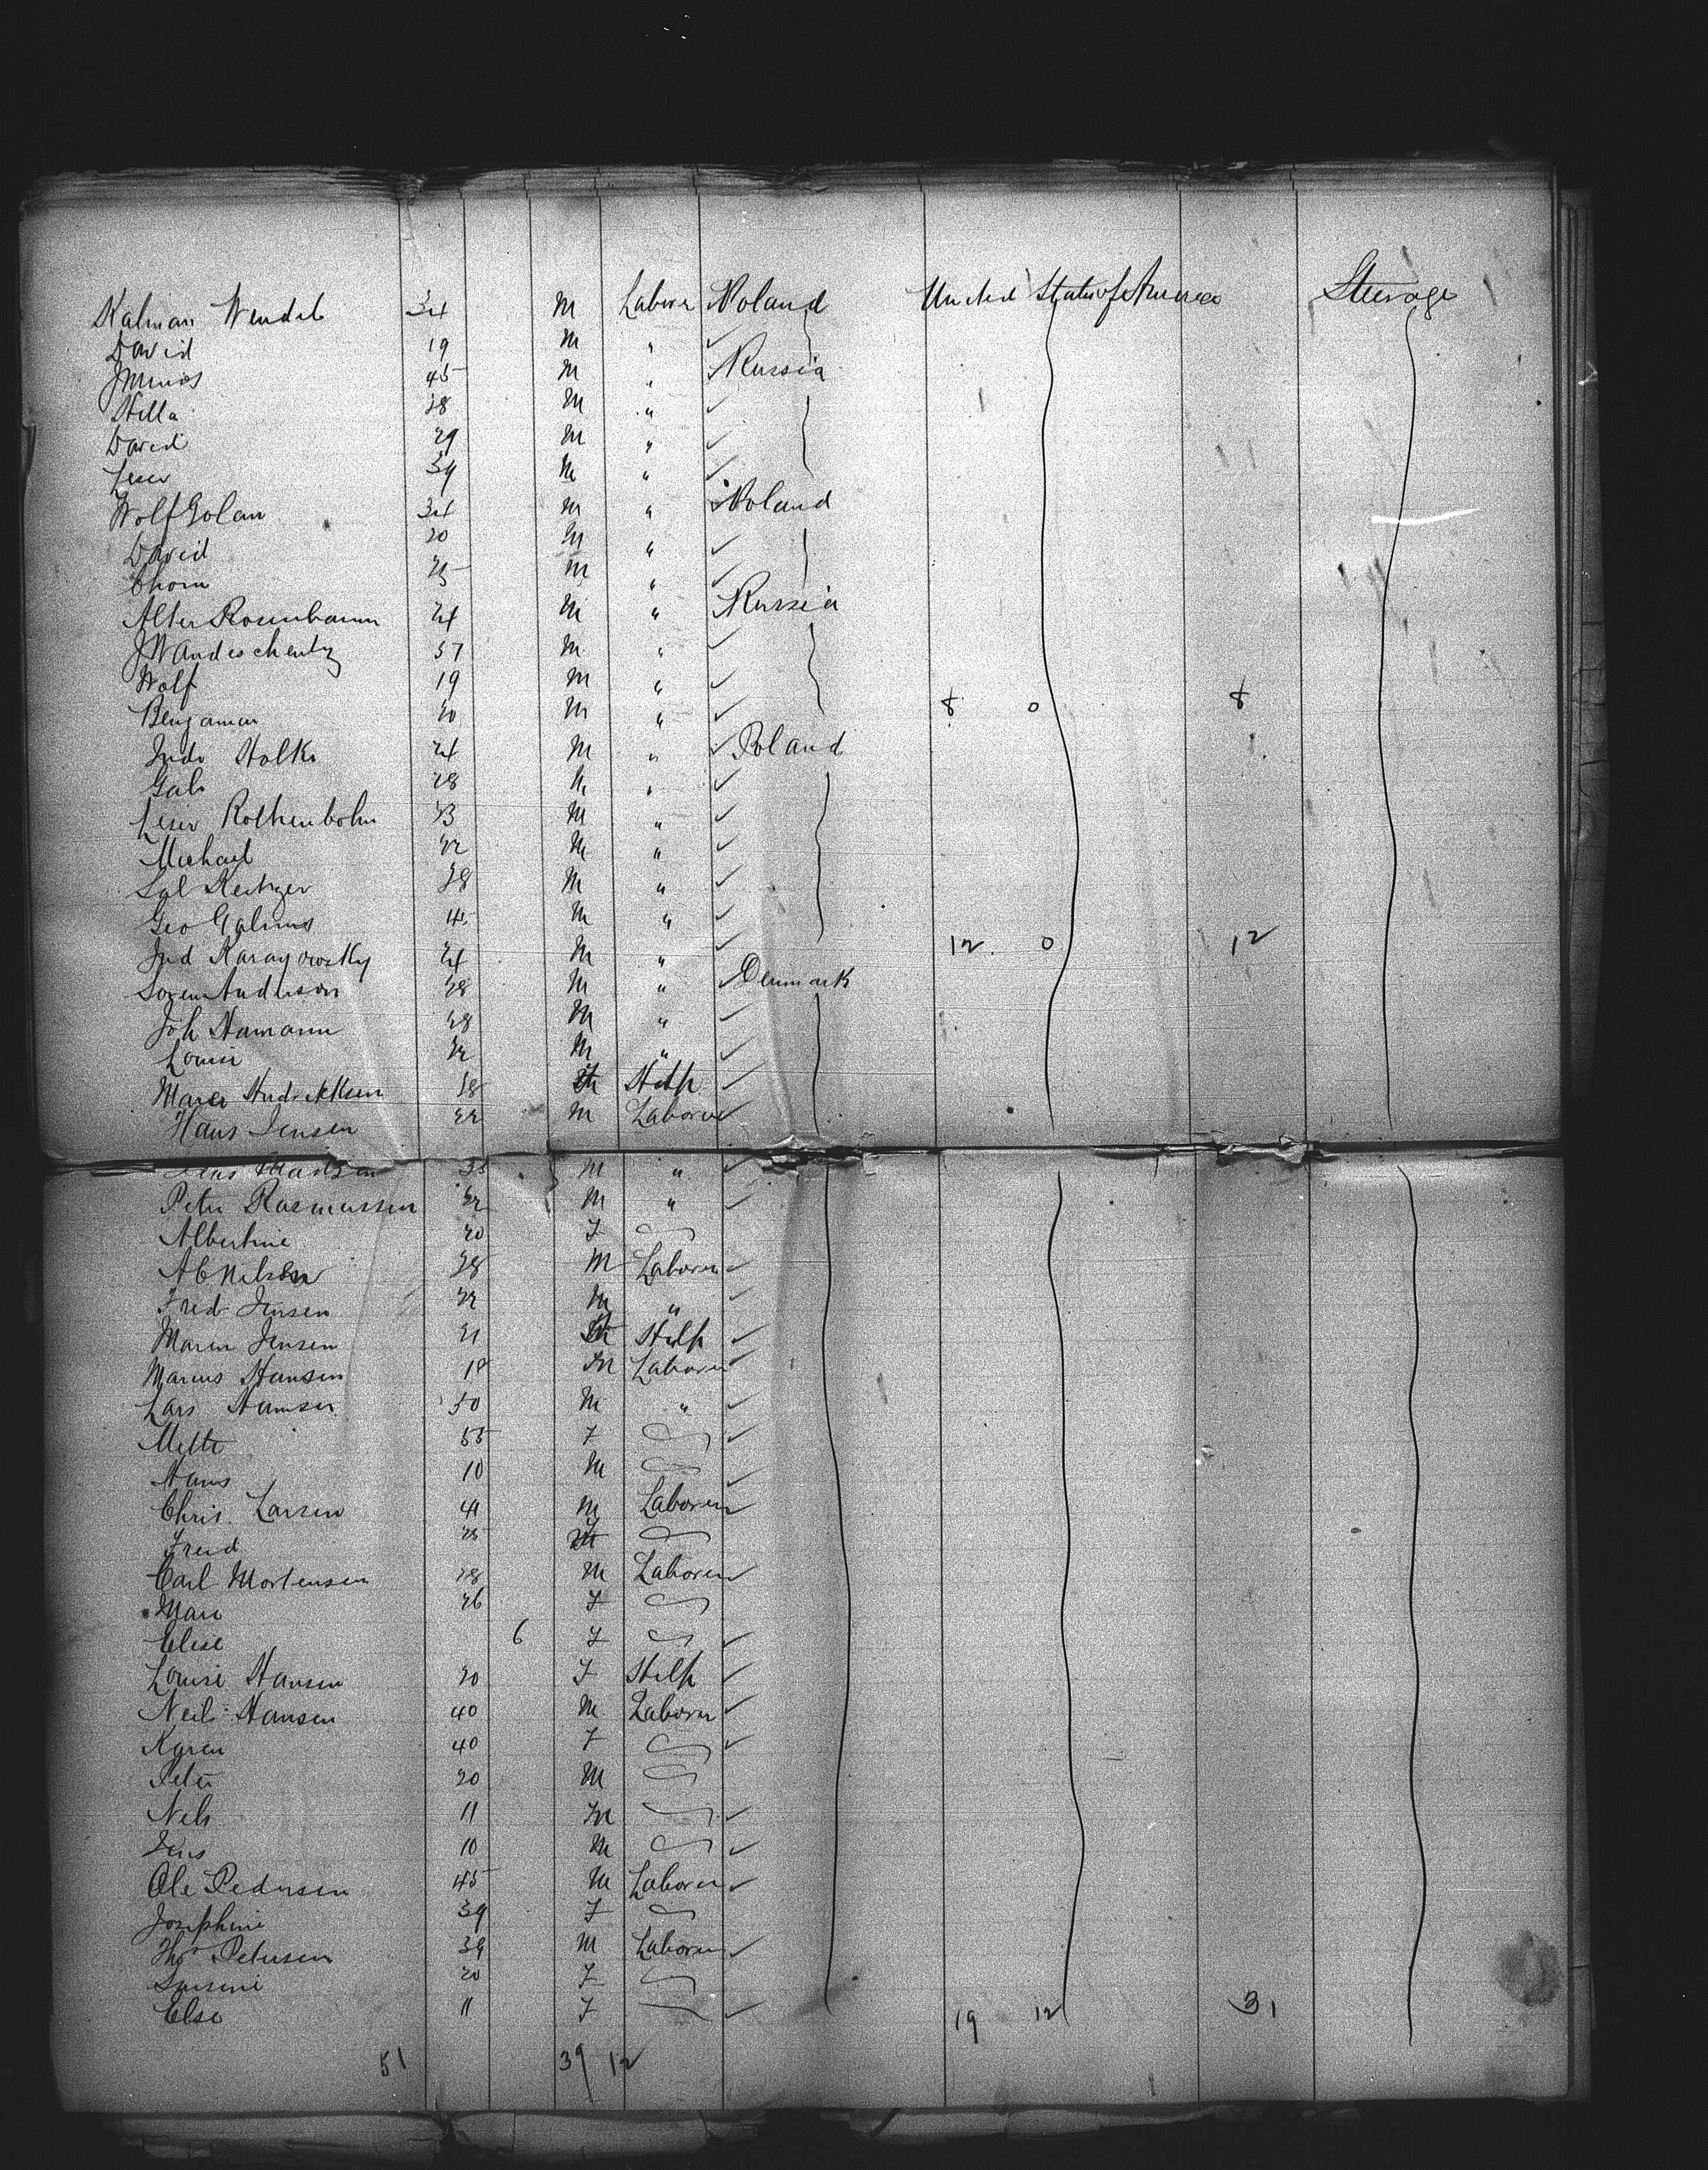 Kalman Wendel 34 M Laborer Poland United States of America Steerage
David 19 M "
45 M " Russia
Stella 28 M "
David 29 M "
Leser 39 M "
Wolf Golan 34 M " Poland
David 20 M "
Chom 25 M "
Alter Rosenbaum 24 M " Russia
37 M "
Wolf 19 M "
Benjamin 20 M " 8 0 8
Stolki 24 M " Poland
Gab 28 M "
Leser Rothenbohm 43 M "
Michael 22 M "
Sal 28 M "
Geo M "
Jud 24 M " 12 0 12
Soren Anderson 28 M " Denmark
Joh Hamann 28 M "
Louis 22 M "
Maren Hendricksen 28 F Help
Hans Jensen 22 M Laborer
Madsen M "
Peter Rasmussen 32 M "
Albertine 20 F
A C Nelson 28 M Laborer
Fred Jensen 22 M "
Maren Jensen 21 F Help
Marius Hansen 18 M Laborer
Lars Hansen 50 M "
Mette 55 F
Hans 10 M
Chris. Larsen 41 M Laborer
28 F
Carl Mortensen 28 M Laborer
Mari 26 F
Elise 6 F
Louise Hansen 20 F Help
Neils Hansen 40 M Laborer
Karen 40 F
Peter 20 M
Nels 11 M
Jens 10 M
Ole Pedersen 45 M Laborer
Josephine 39 F
Tho Petersen 39 M Laborer
20 F
Else 11 F 19 12 31
51 39 12